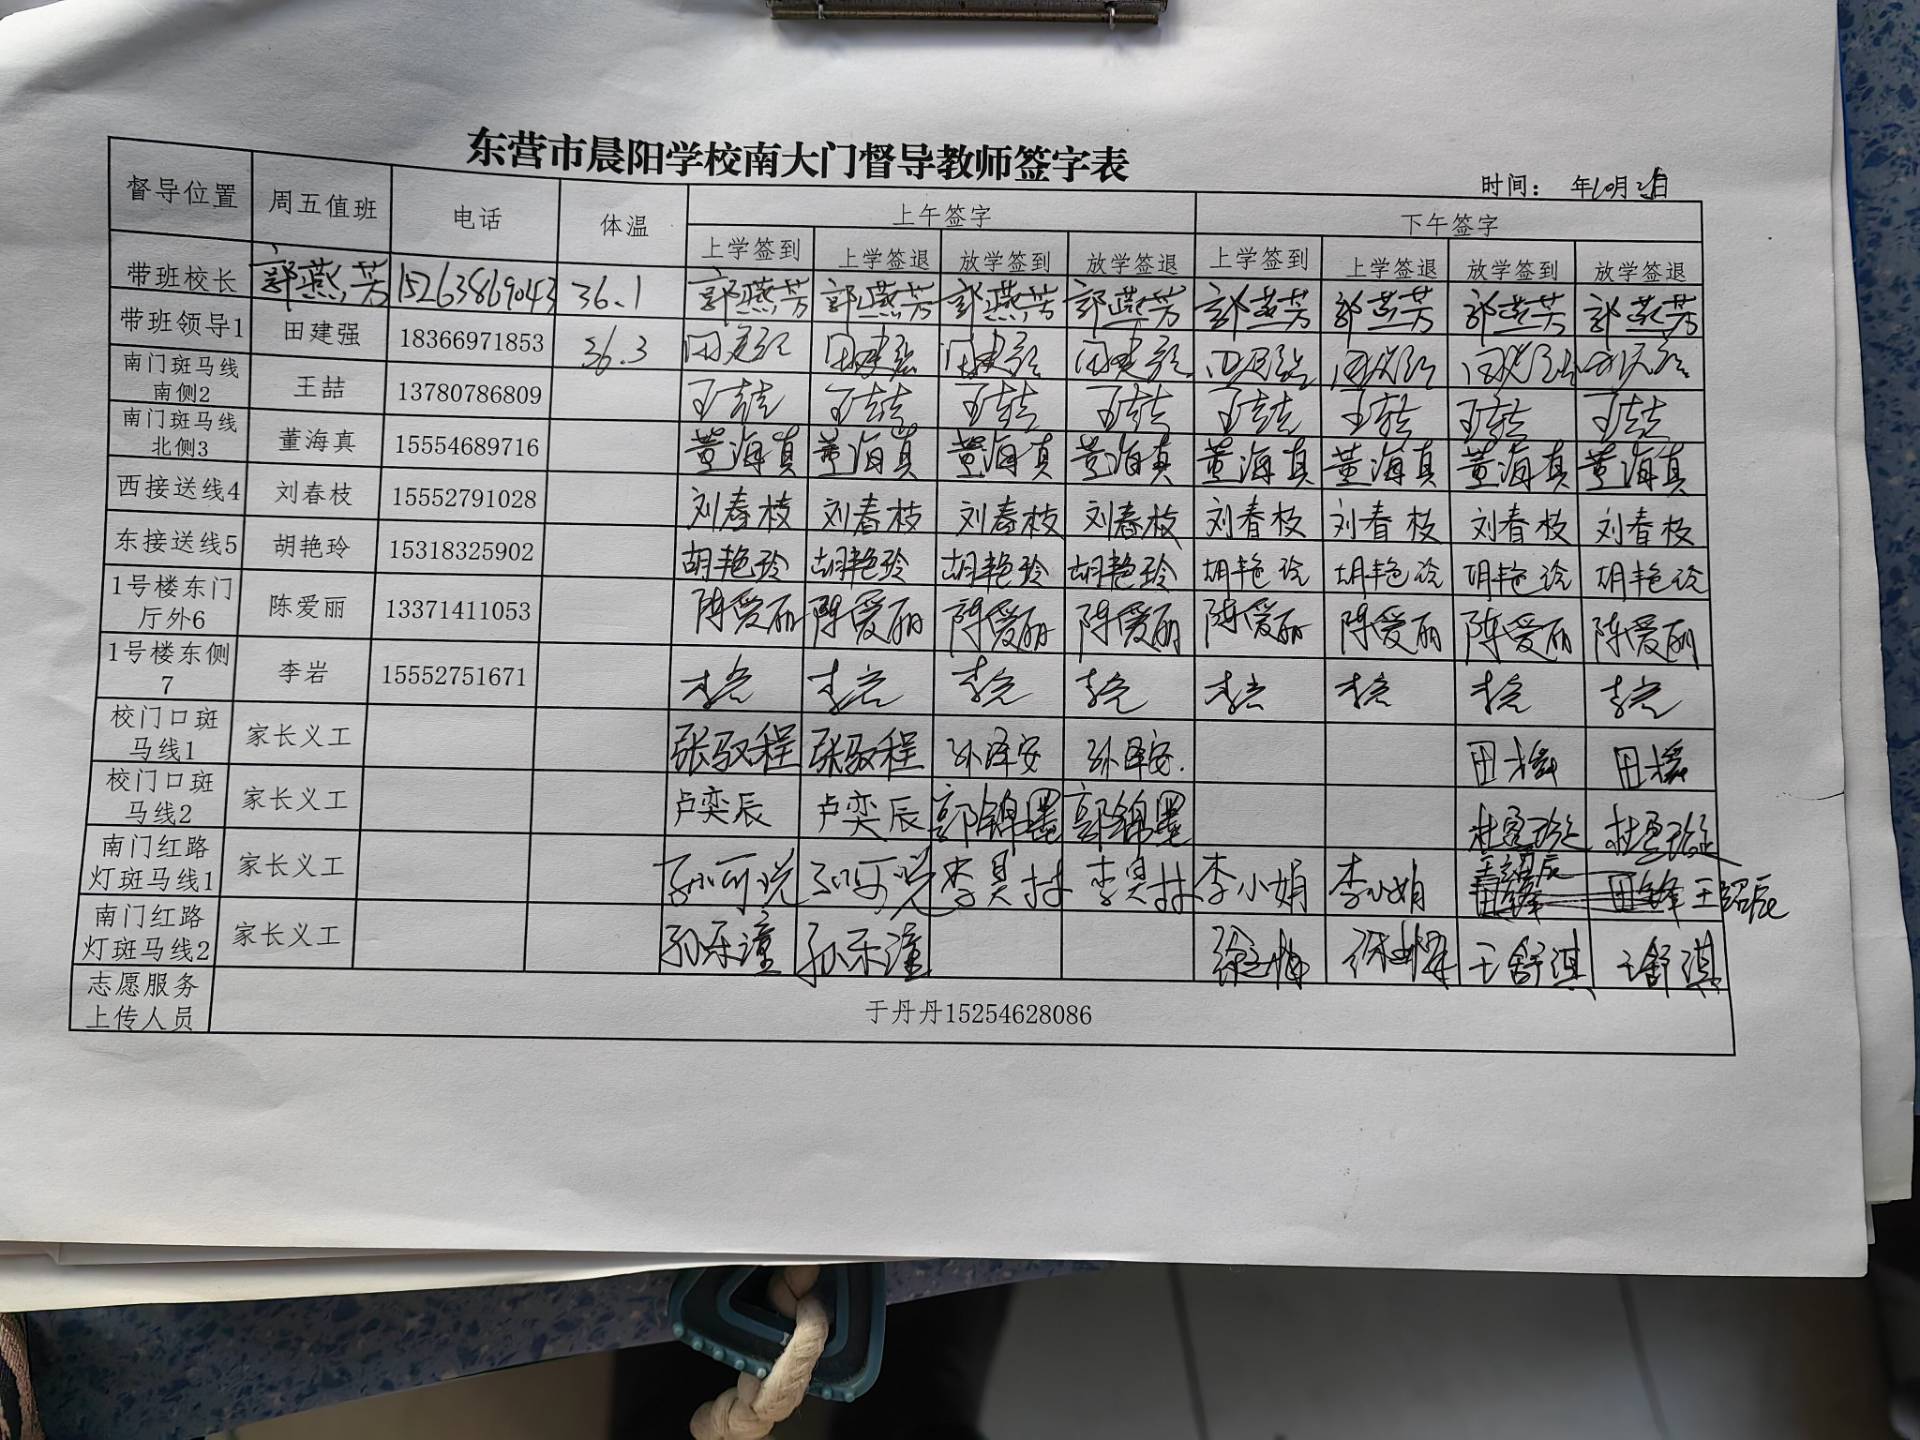 东营市晨阳学校南大门督导教师签字表
时间： 年10月 日
督导位置 周五值班 电话 体温 上午签字 下午签字
上学签到 上学签退 放学签到 放学签退 上学签到 上学签退 放学签到 放学签退
带班校长 郭燕芳 15263869043 36.1 郭燕芳 郭燕芳 郭燕芳 郭燕芳 郭燕芳 郭燕芳 郭燕芳 郭燕芳
带班领导1 田建强 18366971853 36.3 田建强 田建强 田建强 田建强 田建强 田建强 田建强 田建强
南门斑马线
南侧2 王喆 13780786809 王喆 王喆 王喆 王喆 王喆 王喆 王喆 王喆
南门斑马线
北侧3 董海真 15554689716 董海真 董海真 董海真 董海真 董海真 董海真 董海真 董海真
西接送线4 刘春枝 15552791028 刘春枝 刘春枝 刘春枝 刘春枝 刘春枝 刘春枝 刘春枝 刘春枝
东接送线5 胡艳玲 15318325902 胡艳玲 胡艳玲 胡艳玲 胡艳玲 胡艳玲 胡艳玲 胡艳玲 胡艳玲
1号楼东门
厅外6 陈爱丽 13371411053 陈爱丽 陈爱丽 陈爱丽 陈爱丽 陈爱丽 陈爱丽 陈爱丽 陈爱丽
1号楼东侧
7 李岩 15552751671 李岩 李岩 李岩 李岩 李岩 李岩 李岩 李岩
校门口斑
马线1 家长义工 张驭程 张驭程 孙泽安 孙泽安
校门口斑
马线2 家长义工 卢奕辰 卢奕辰 郭锦墨 郭锦墨
南门红路
灯斑马线1 家长义工 孙可悦 孙可悦 李昊林 李昊林 李小娟 李小娟 王韶辰 田锋 王韶辰
南门红路
灯斑马线2 家长义工 孙乐潼 孙乐潼 王舒淇 王舒淇
志愿服务
上传人员 于丹丹15254628086